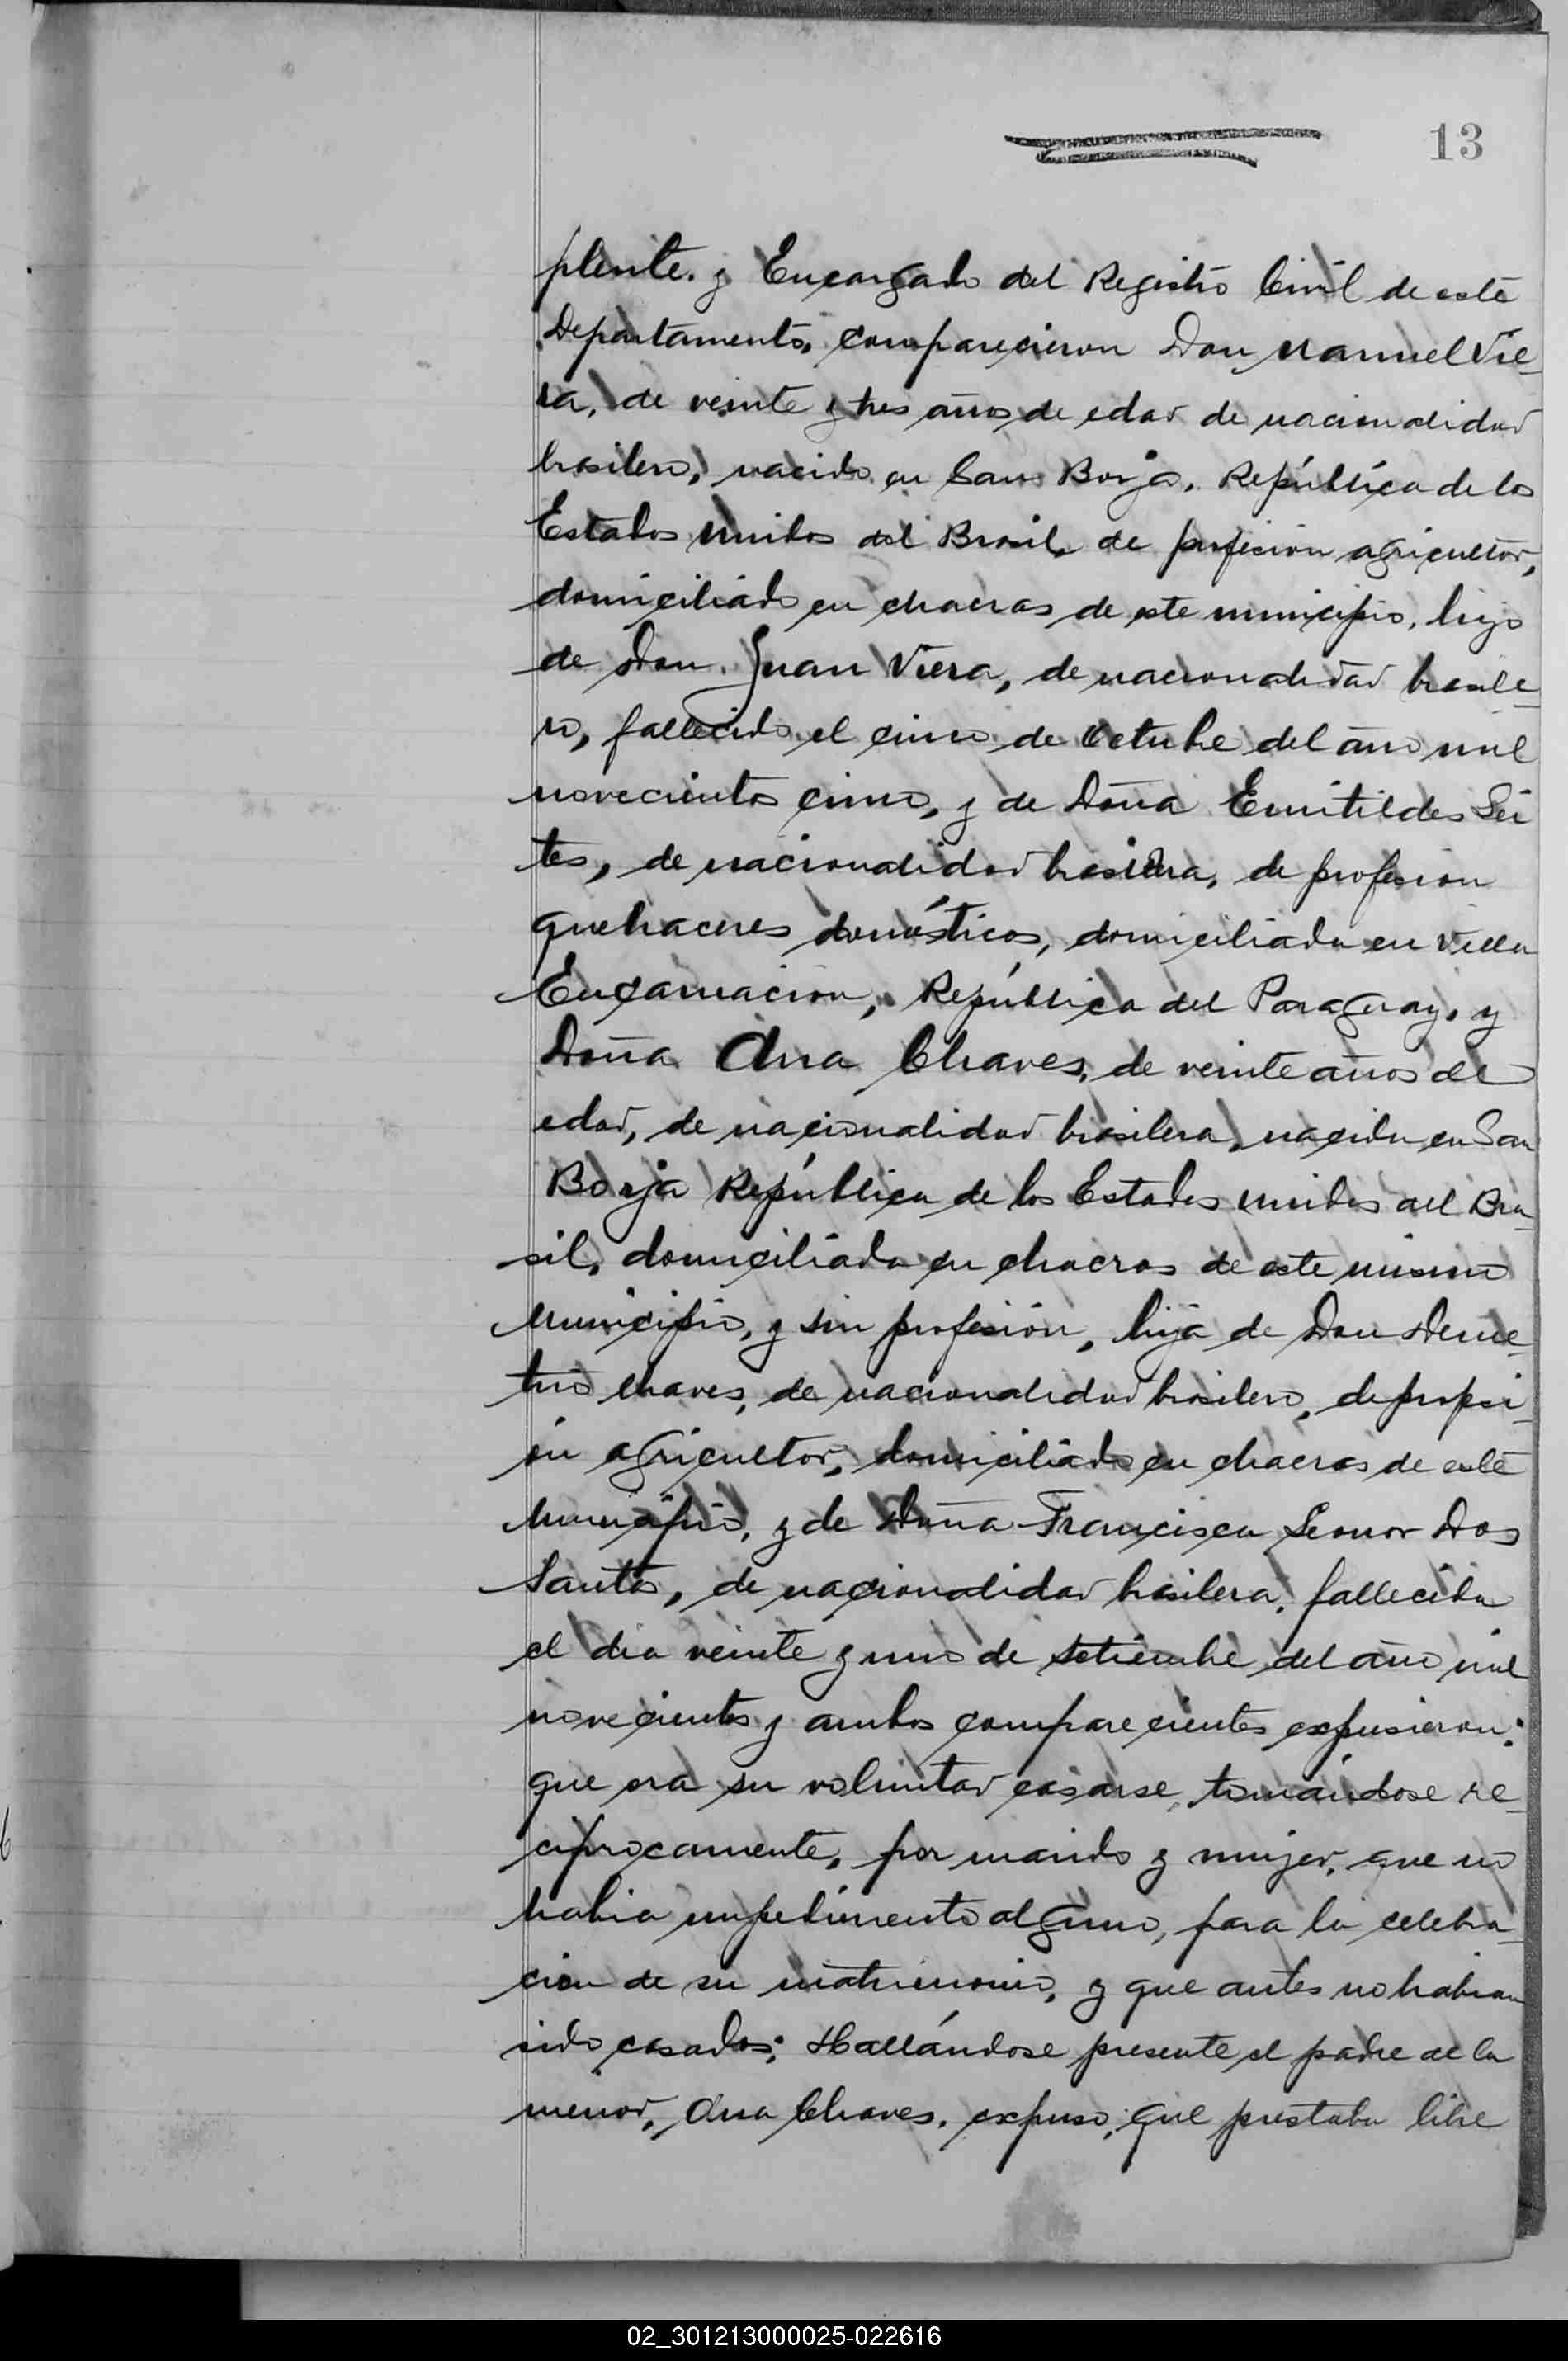 13
plente. y Encargado del Registro Civil de este
Departamento, comparecieron Don Manuel Vie-
ra, de veinte y tres años de edad de nacionalidad
brasilero, nacido en San Borja, República de los
Estados Unidos del Brasil, de profesion agricultor,
domiciliado en chacras de este municipio, hijo
de Don Juan Viera, de nacionalidad brasile-
ro, fallecido el cinco de Octubre del año mil
novecientos cinco, y de Doña Emitildes Lei
tes, de nacionalidad brasilera, de profesion
quehaceres domésticos, domiciliada en Villa
Encarnacion, República del Paraguay, y
Doña Ana Chaves, de veinte años de
edad, de nacionalidad brasilera, nacida en San
Borja República de los Estados Unidos del Bra-
sil, domiciliada en chacras de este mismo
Municipio, y sin profesión, hija de Don Deme-
trio Chaves, de nacionalidad brasilero, de profesi-
ón agricultor, domiciliado en chacras de este
Municipio, y de Doña Francisca Leonor Dos
Santos, de nacionalidad brasilera, fallecida
el dia veinte y uno de Setiembre del año mil
novecientos y ambos comparecientes expusieron:
que era su voluntad casarse, tomándose re-
ciprocamente, por marido y mujer, que no
habia impedimento alguno, para la celebra-
cion de su matrimonio, y que antes no habian
sido casados; Hallándose presente el padre de la
menor, Ana Chaves, expuso, que prestaba libre
02_301213000025-022616